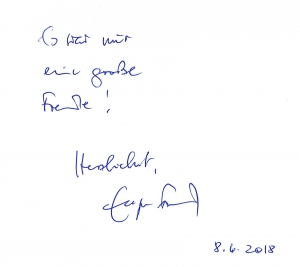 Es war mir
eine große
Freude!
Herzlichst,
8.6.2018